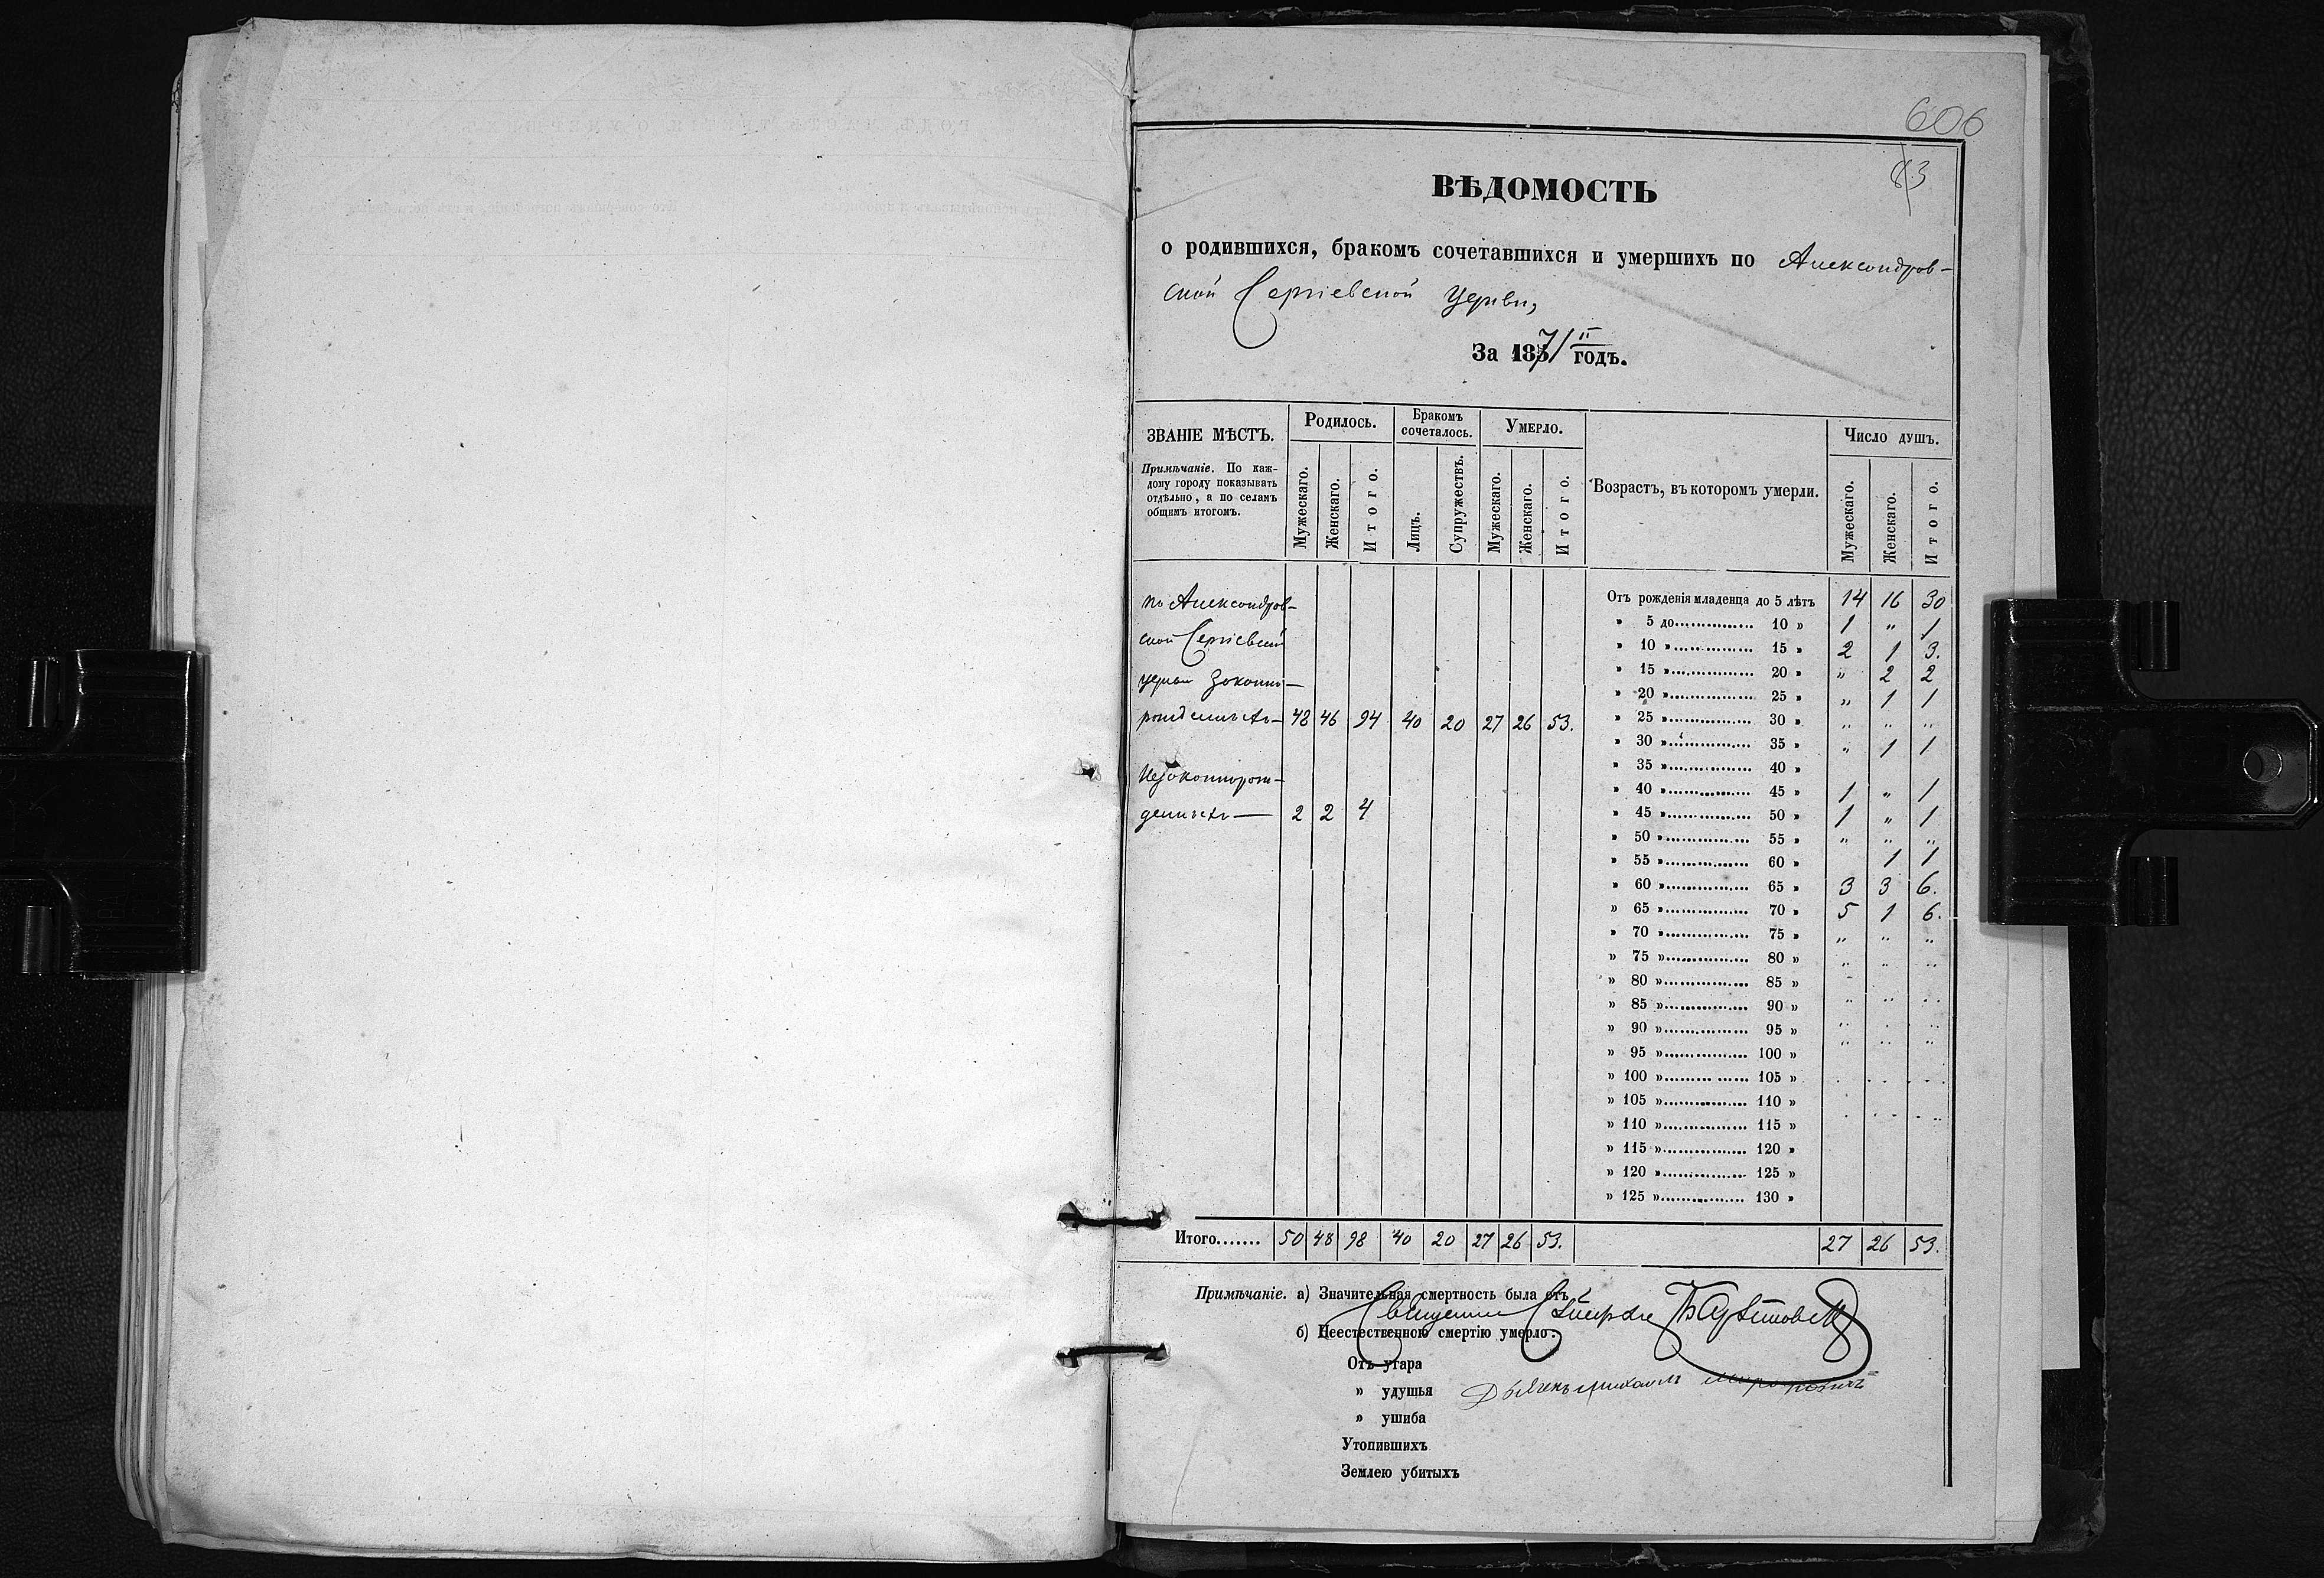 606
83
ВѢДОМОСТЬ
о родившихся, бракомъ сочетавшихся и умершихъ по Александров-
ской Сергіевской церкви,
За 187/II годъ.
ЗВАНІЕ МѢСТЪ. Родилось. Бракомъ сочеталось. Умерло. Возрастъ, въ которомъ умерли. Число душъ.
Примѣчаніе. По каж-
дому городу показывать
отдѣльно, а по селамъ
общимъ итогомъ.
Мужескаго. Женскаго. Итого. Лицъ. Супружествъ. Мужескаго. Женскаго. Итого. Мужескаго. Женскаго. Итого.
по Александров-
ской Сергіевской
церкви законно-
рожденныхъ — 48 46 94 40 20 27 26 53.
Незаконнорож-
денныхъ — 2 2 4
Отъ рожденія младенца до 5 лѣтъ 14 16 30
» 5 до............... 10 » 1 „ 1
» 10 »............... 15 » 2 1 3.
» 15 »............... 20 » „ 2 2
» 20 »............... 25 » „ 1 1
» 25 »............... 30 » „ „ „
» 30 »............... 35 » „ 1 1
» 35 »............... 40 »
» 40 »............... 45 » 1 „ 1
» 45 »............... 50 » 1 „ 1
» 50 »............... 55 » „ „ „
» 55 »............... 60 » 1 1
» 60 »............... 65 » 3 3 6.
» 65 »............... 70 » 5 1 6.
» 70 »............... 75 » „ „ „
» 75 »............... 80 » „ „ „
» 80 »............... 85 »
» 85 »............... 90 » „ „ „
» 90 »............... 95 »
» 95 »............... 100 »
» 100 »............... 105 »
» 105 »............... 110 »
» 110 »............... 115 »
» 115 »............... 120 »
» 120 »............... 125 »
» 125 »............... 130 »
Итого....... 50 48 98 40 20 27 26 53. 27 26 53.
Примѣчаніе. а) Значительная смертность была отъ
Священник
б) Неестественною смертію умерло:
Отъ угара
» удушья
Дьячекъ Михаилъ
» ушиба
Утопившихъ
Землею убитыхъ